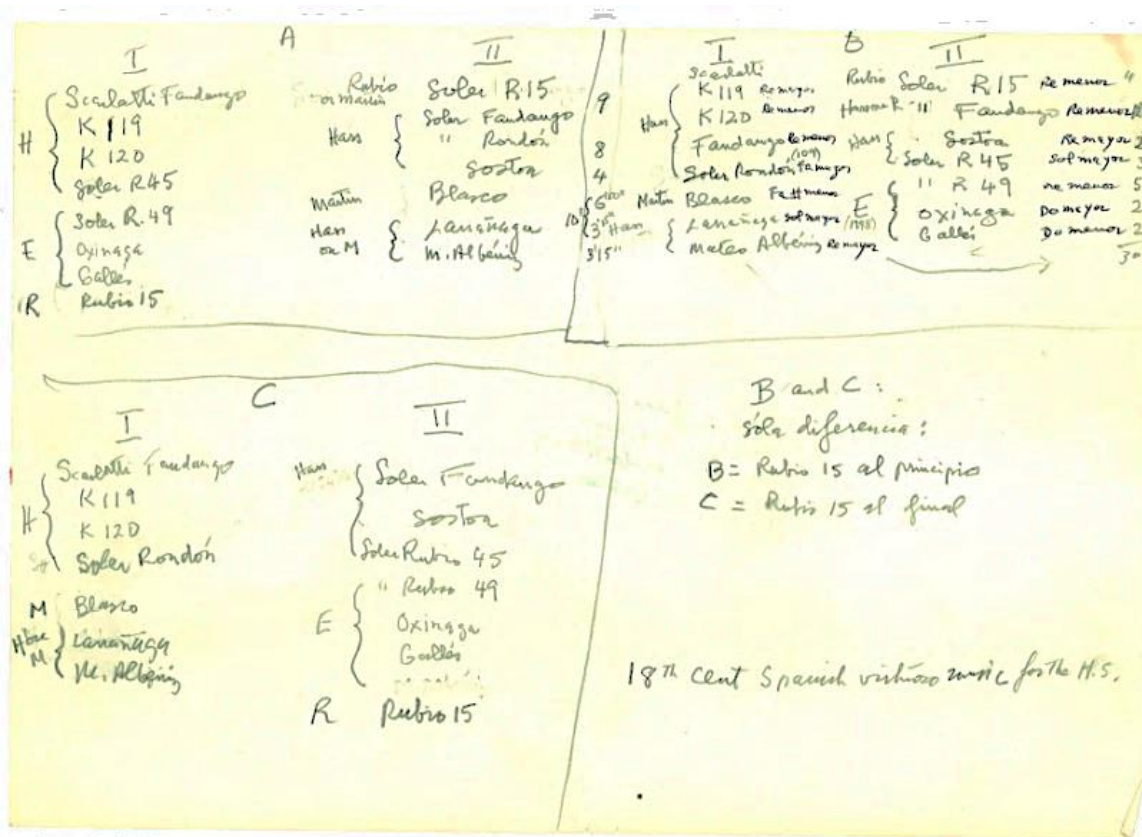 A
I
H
Scarlatti Fandango
K 119
K 120
Soler R45
E
Soler R.49
Oxinaga
Gallés
R Rubio 15
II
Rubio or Martin Soler R.15 9
Hass
Soler Fandango
" Rondón 8
Sostoa 4
Martin Blasco 6'
Hass or M
Larrañaga 3'
M. Albéniz 3'15"
B
I
Scarlatti
Hass
K 119 Re mayor
K 120 Re menor
Fandango Re menor
Soler Rondón Fa mayor
Martin Blasco Fa # menor
Hass
Larrañaga sol mayor
Mateo Albéniz Re mayor
II
Rubio Soler R15 Re menor
Hass or R " Fandango Re menor
Hass
Sostoa Re mayor
Soler R45 Sol mayor
E
" R 49 Re menor
Oxinaga Do mayor
Gallés Do menor
C
I
H
Scarlatti Fandango
K 119
K 120
Soler Rondón
M Blasco
H M
Larrañaga
M. Albéniz
II
Hass
Soler Fandango
Sostoa
Soler Rubio 45
E
" Rubio 49
Oxinaga
Gallés
R Rubio 15
B and C :
sóla diferencia :
B = Rubio 15 al principio
C = Rubio 15 al final
18th Cent Spanish virtuoso music for the H.S.